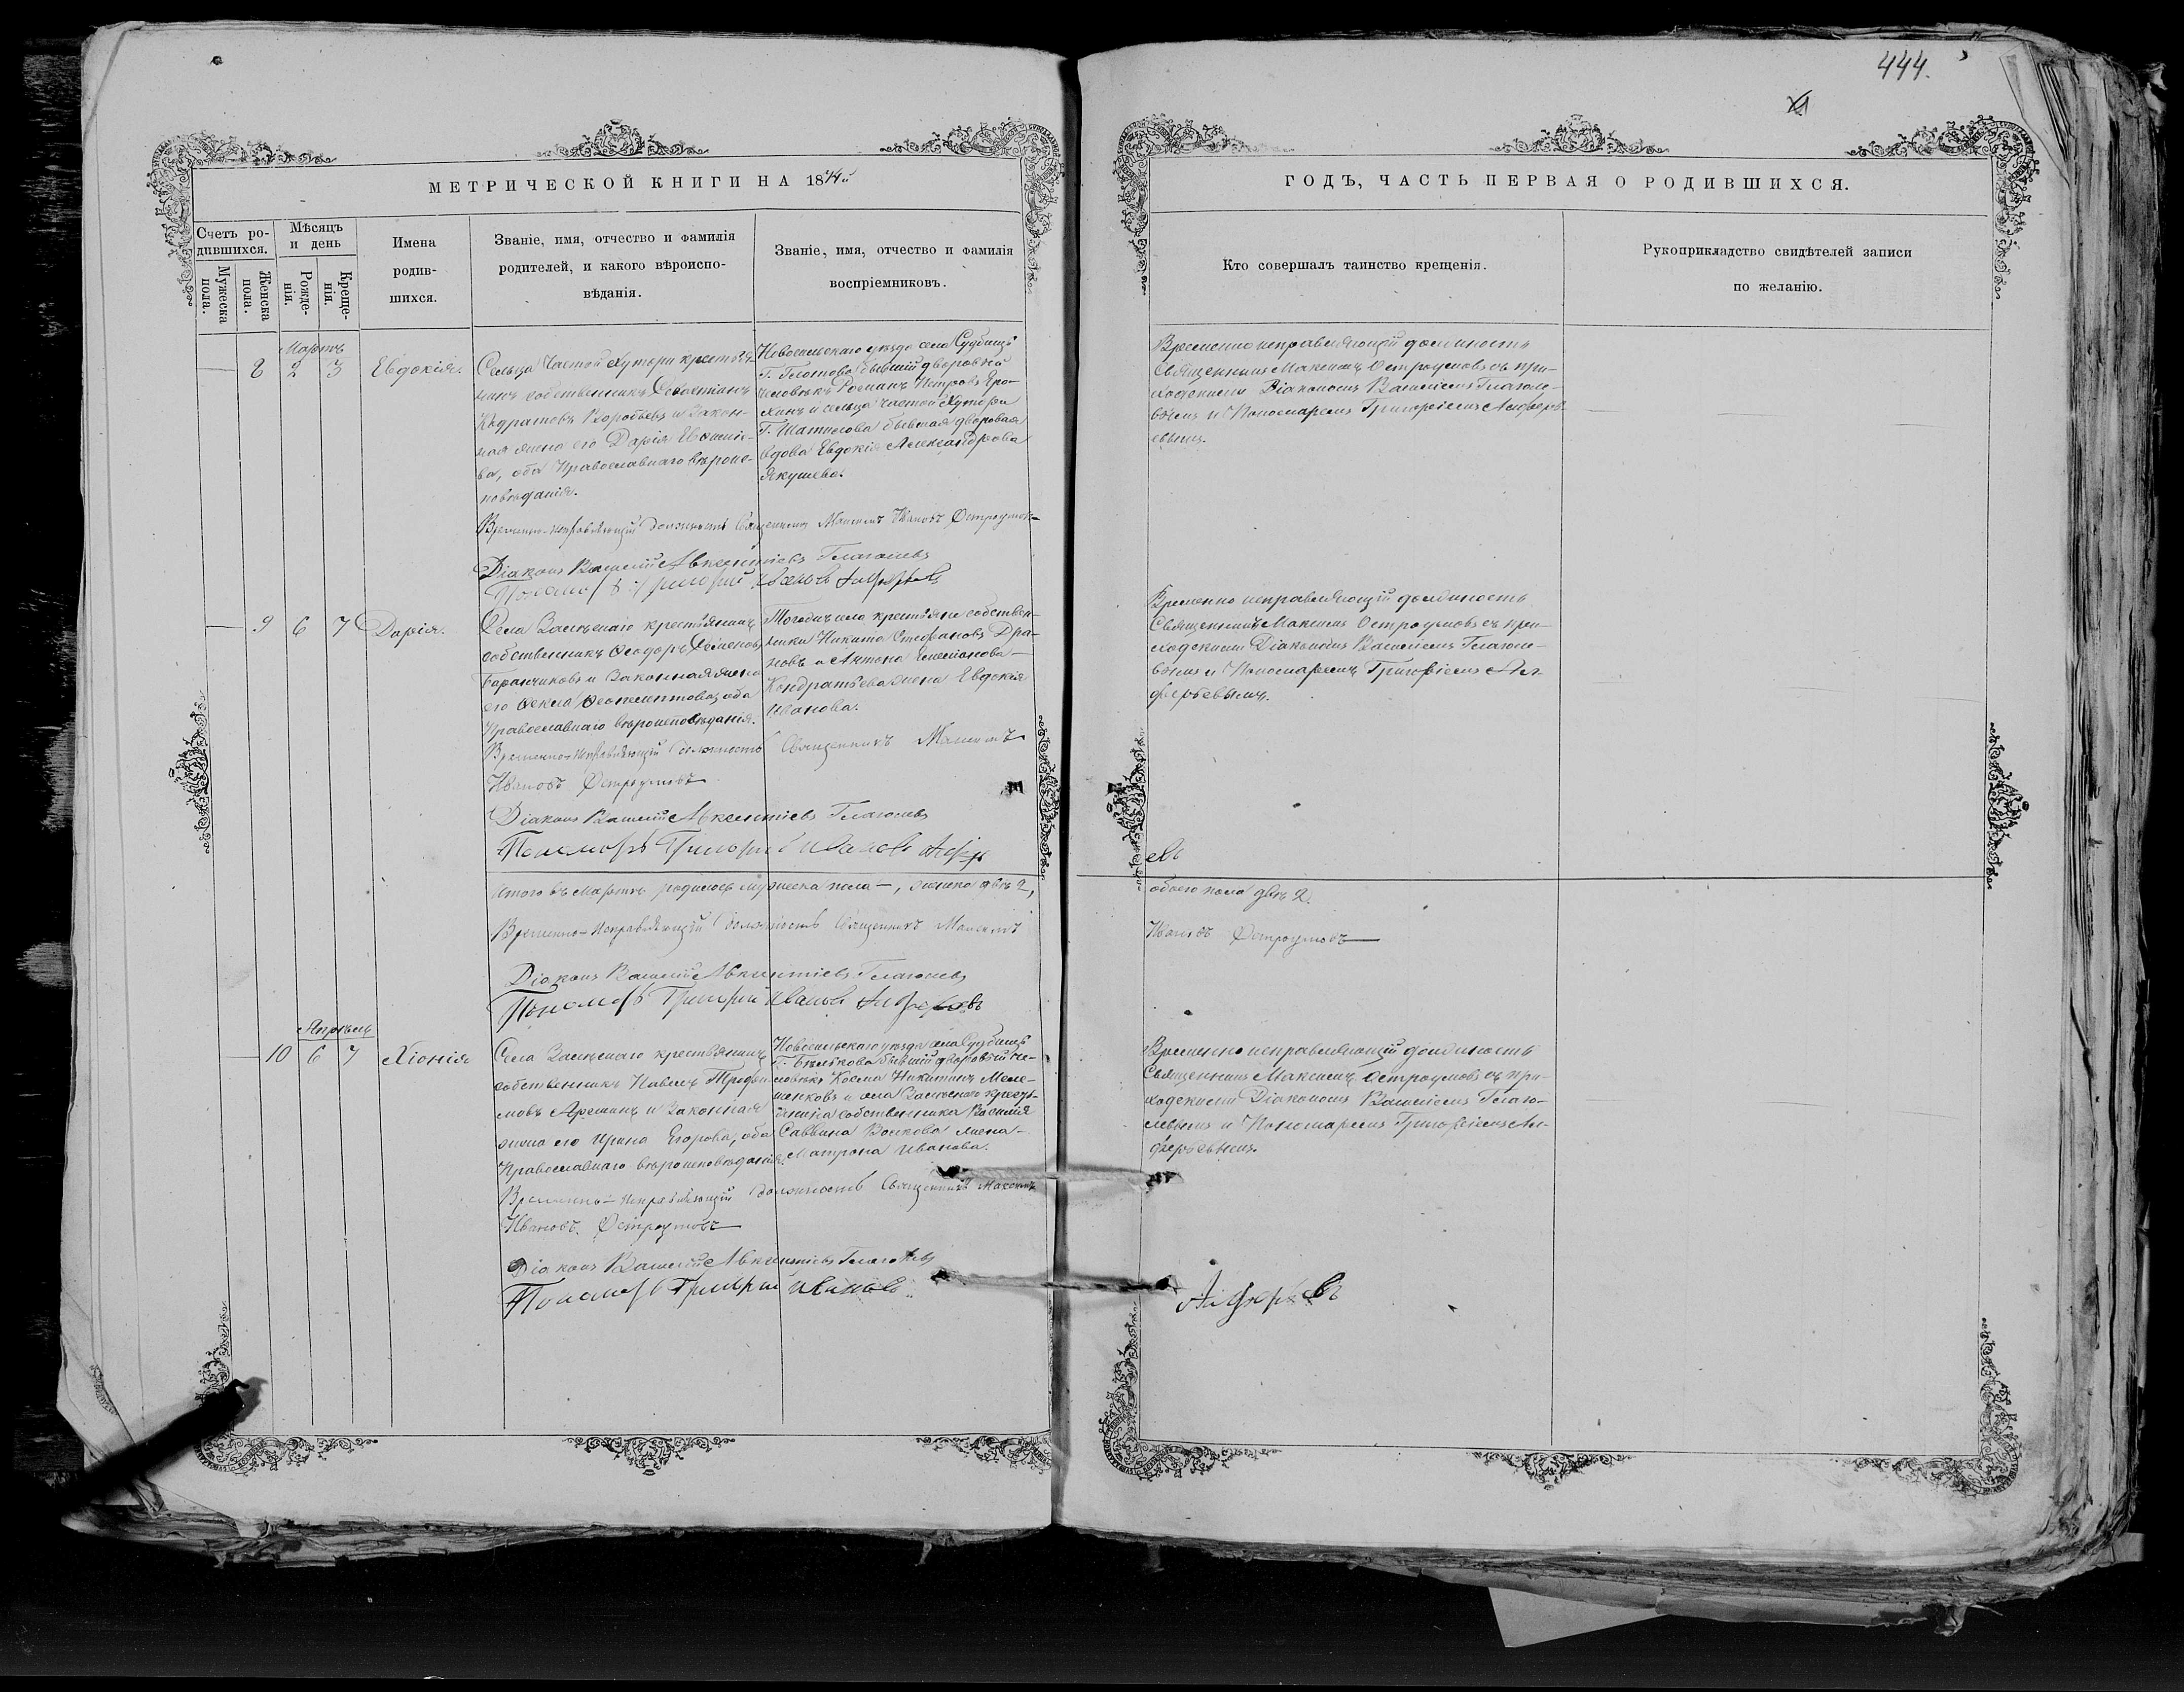 444.
МЕТРИЧЕСКОЙ КНИГИ НА 1874й
ГОДЪ, ЧАСТЬ ПЕРВАЯ О РОДИВШИХСЯ.
Счетъ ро-
дившихся.
Мужеска
пола.
Женска
пола.
Мѣсяцъ
и день
Рожде-
нія.
Креще-
нія.
Имена
родив-
шихся.
Званіе, имя, отчество и фамилія
родителей, и какого вѣроиспо-
вѣданія.
Званіе, имя, отчество и фамилія
воспріемниковъ.
Кто совершалъ таинство крещенія.
Рукоприкладство свидѣтелей записи
по желанію.
Мартъ
8 2 3 Евдокія.
Сельца Частой Хутори крестья-
нинъ собственникъ Севастіанъ
Кодратовъ Воробьевъ и закон-
ная жена его Дарія
ва, оба Православнаго вѣроис-
повѣданія.
Новосильскаго уѣзда села Судбищъ
Г. Глотова бывшій дворовый
человѣкъ Романъ Петровъ Еро-
хинъ и сельца Частой Хутори
Г. Шатилова бывшая дворовая
вдова Евдокія Александрова
Якушева.
Временно исправляющій должность
Священникъ Максимъ Остроумовъ съ при-
ходскими Діакономъ Василіемъ Глаголе-
вымъ и Пономаремъ Григоріемъ Алферь-
евымъ.
Временно-исправляющій должность Священникъ Максимъ Ивановъ Остроумовъ
Діаконъ Василій Авксентіевъ Глаголевъ
Пономарь Григорій Ивановъ Алферьевъ
9 6 7 Дарія.
Села Залѣснаго крестьянинъ
собственникъ Ѳеодоръ Семеновъ
Баранчиковъ и законная жена
его Ѳекла Ѳеоктистова, оба
Православнаго вѣроисповѣданія.
Тогожъ села крестьяне собствен-
ники Никита Стефановъ Дра-
новъ и Антона Емеліанова
Кондратьева жена Евдокія
Иванова.
Временно исправляющій должность
Священникъ Максимъ Остроумовъ съ при-
ходскими Діакономъ Василіемъ Глаголе-
вымъ и Пономаремъ Григоріемъ Ал-
ферьевымъ.
Временно-исправляющій должность Священникъ Максимъ
Ивановъ Остроумовъ
Діаконъ Василій Авксентіевъ Глаголевъ
Пономарь Григорій Ивановъ Алферь
евъ
Итого въ Мартѣ родилось мужеска пола —, женска двѣ 2,
обоего пола двѣ 2.
Временно-исправляющій должность Священникъ Максимъ
Ивановъ Остроумовъ
Діаконъ Василій Авксентіевъ Глаголевъ
Пономарь Григорій Ивановъ Алферьевъ
Апрѣль
10 6 7 Хіонія
Села Залѣснаго крестьянинъ
собственникъ Павелъ Трофи-
мовъ Арешинъ и законная
жена его Ирина Егорова, оба
Православнаго вѣроисповѣданія.
Новосильскаго уѣзда села Судбищъ
Г. Бѣлѣкова бывшій дворовый че-
ловѣкъ Косма Никитинъ Меле-
шенковъ и села Залѣснаго кресть-
янина собственника Василія
Саввина Волкова жена
Матрона Иванова.
Временно исправляющій должность
Священникъ Максимъ Остроумовъ съ при-
ходскими Діакономъ Василіемъ Глаго-
левымъ и Пономаремъ Григоріемъ Ал-
ферьевымъ.
Временно-исправляющій должность Священникъ Максимъ
Ивановъ Остроумовъ
Діаконъ Василій Авксентіевъ Глаголевъ
Пономарь Григорій Ивановъ
Алферьевъ